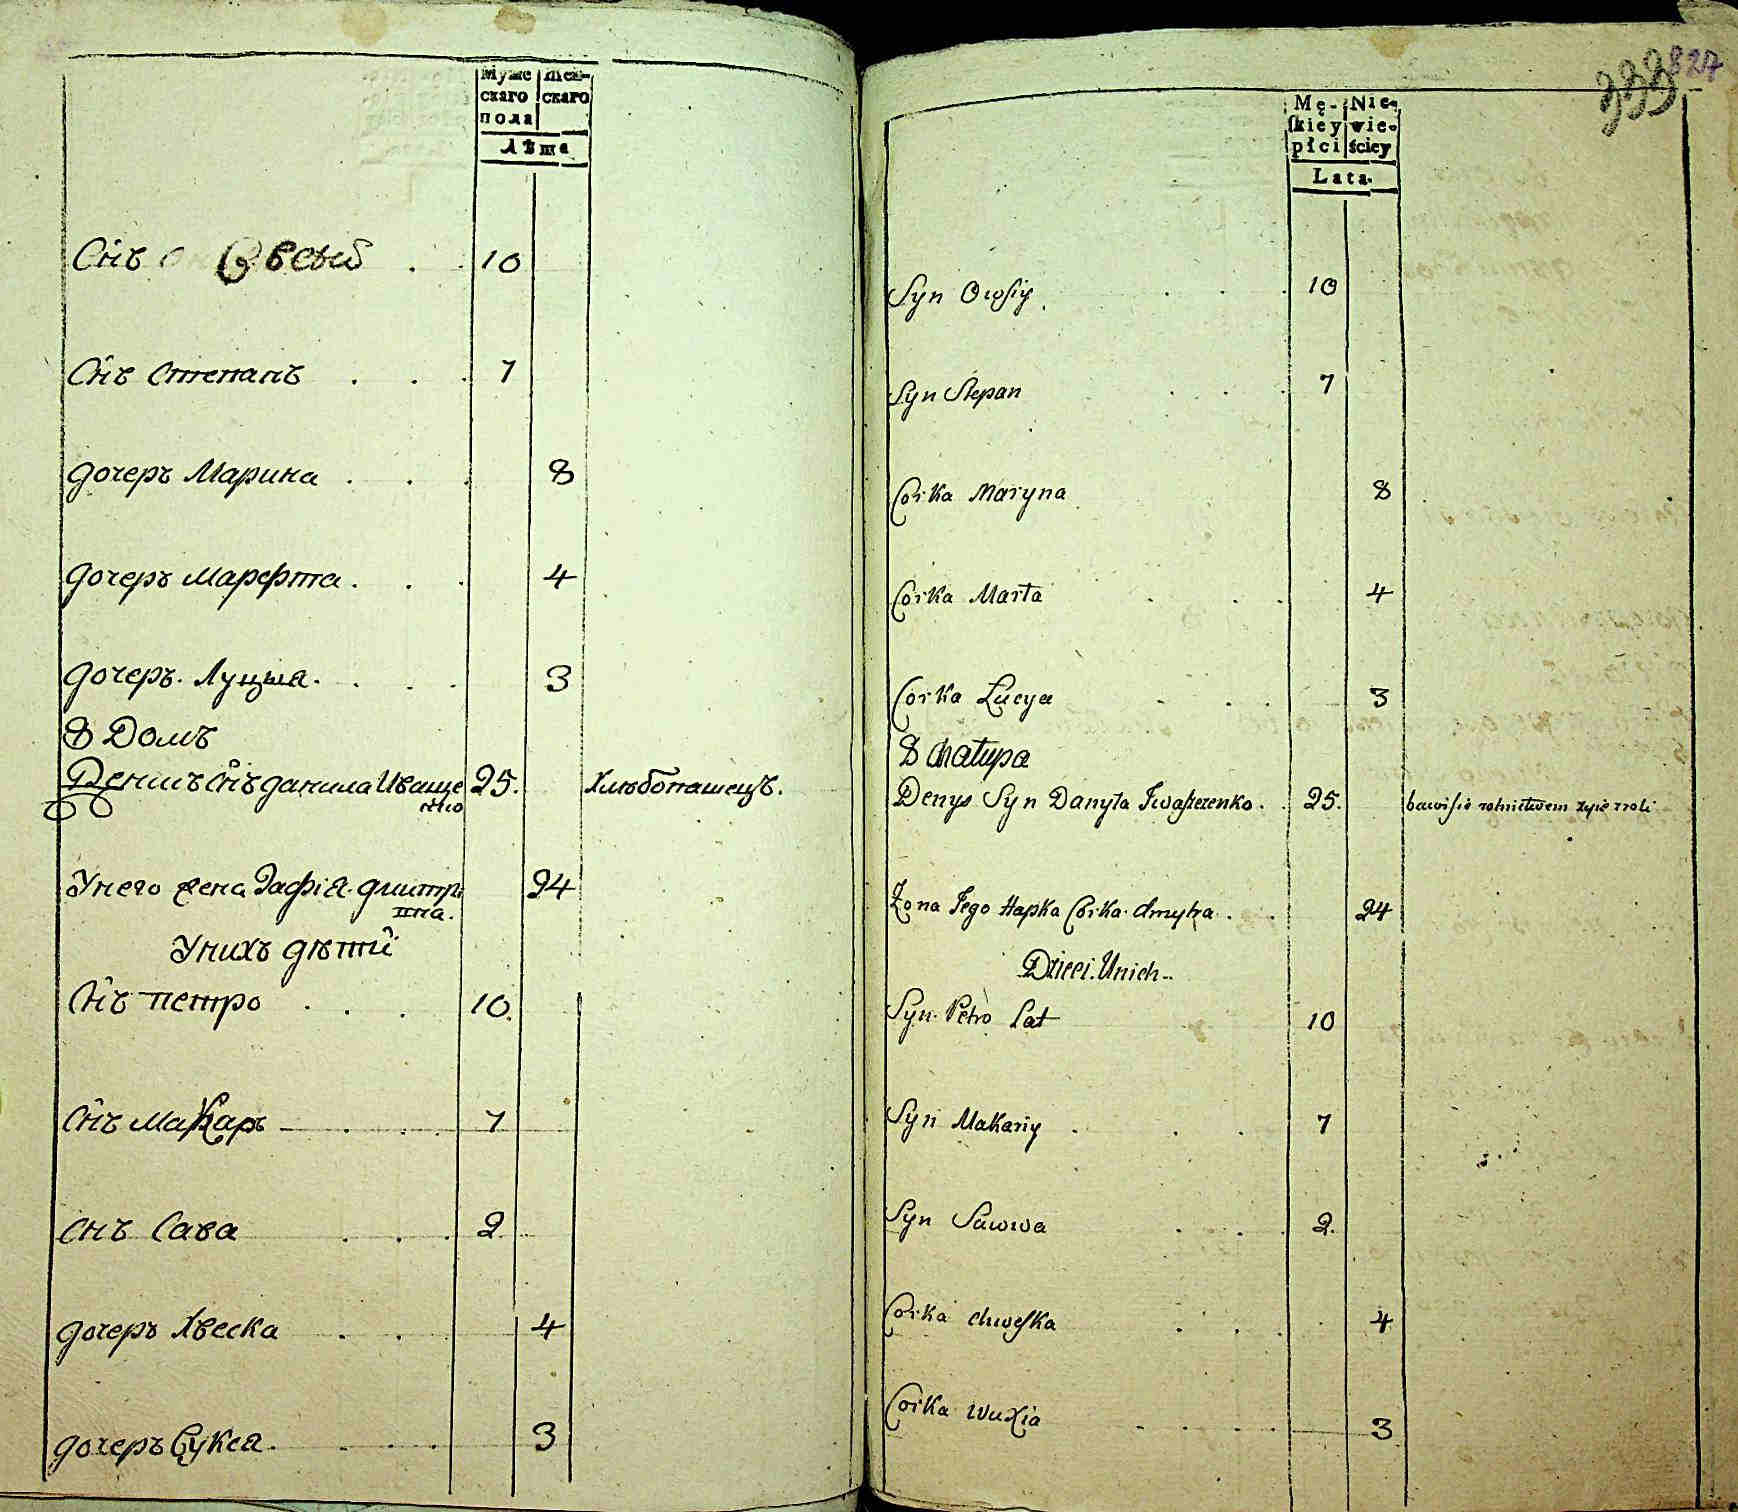 Муже Жен-
скаго скаго
пола
Лѣта
Сн̃ъ Овсѣй 10
Сн̃ъ Степанъ 7
дочеръ Марина 8
дочеръ Марфта 4
дочеръ Луцыа 3
8 Домъ
Денисъ Сн̃ъ данила Иваще 25. Хлѣбопашецъ.
нко
Унего жена Гафіа дмитрі 24
ина.
Унихъ дѣти
Сн̃ъ петро 10.
Сн̃ъ Макаръ 7
Снъ Сава 2
дочеръ Хвеска 4
дочеръ Вукса 3
827
333
Mę- Nie-
ſkiey wie-
płci ściey
Lata.
Syn Owsiy 10
Syn Stepan 7
Corka Maryna 8
Corka Marta 4
Corka Lucya 3
8 Chałupa
Denys Syn Danyła Iwaszczenko 25. bawi sie rolnictwem żyie z roli
Żona Jego Hapka Corka dmytra 24
Dzieci Unich
Syn Petro Lat 10
Syn Makariy 7
Syn Sawwa 2
Corka chweska 4
Corka Wuxia 3